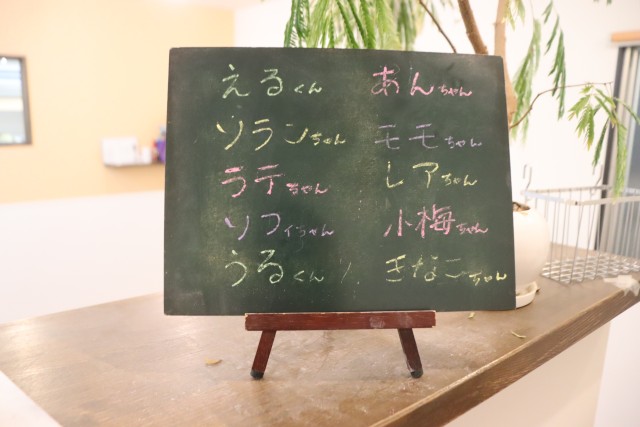 えるくん
ソランちゃん
ラテちゃん
ソフィちゃん
うるくん
あんちゃん
モモちゃん
レアちゃん
小梅ちゃん
きなこちゃん